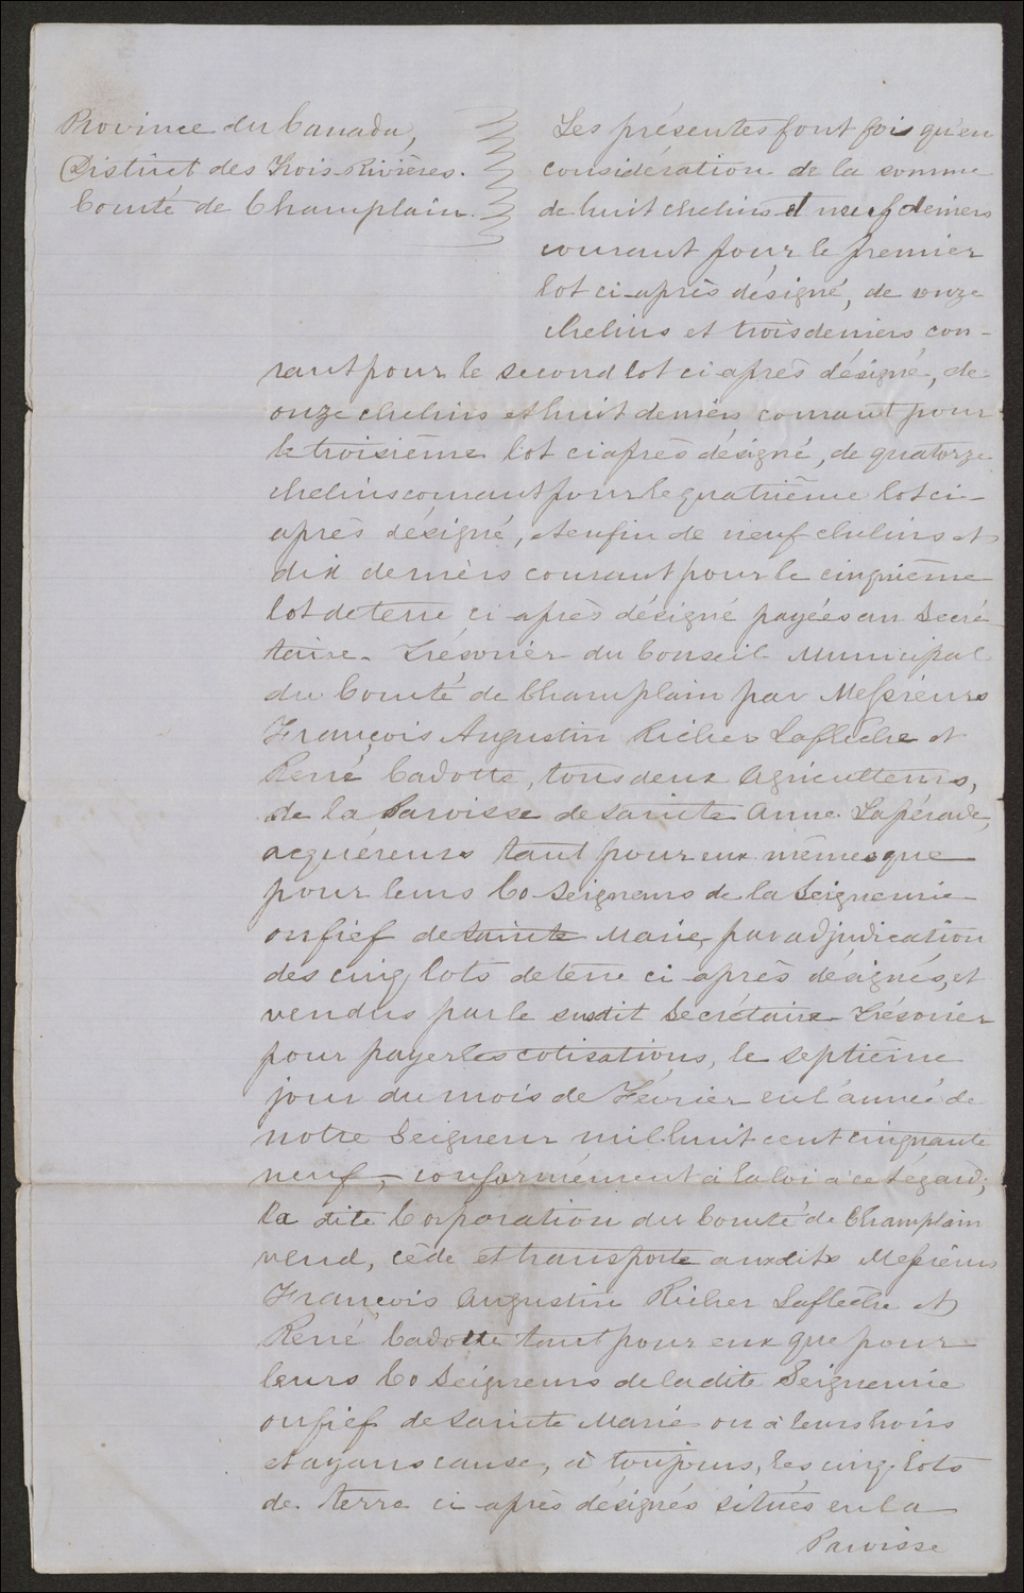 Province du Canada,
District des Trois-Rivières.
Comté de Champlain.
Les présentes font fois qu'en
considération de la somme
de huit chelins et neuf deniers
courant pour le premier
lot ci-après désigné, de onze
chelins et trois deniers cou-
rant pour le second lot ci-après désigné, de
onze chelins et huit deniers courant pour
le troisième lot ci après désigné, de quatorze
chelins courant pour le quatrième lot ci-
après désigné, et enfin de neuf chelins et
dix deniers courant pour le cinquième
lot de terre ci-après désigné payées au Secré-
taire-Trésorier du Conseil Municipal
du Comté de Champlain par Messieurs
François Augustin Richer Laflèche et
René Cadotte, tous deux Agriculteurs,
de la Paroisse de Sainte Anne Lapérade,
acquéreurs tant pour eux mêmes que
pour leurs Co-Seigneurs de la Seigneurie
ou fief de Sainte Marie par adjudication
des cinq lots de terre ci-après désignés, et
vendus par le susdit Secrétaire-Trésorier
pour payer les cotisations, le septième
jour du mois de Février en l'année de
notre Seigneur mil huit cent cinquante
neuf, conformément à la loi à cet égard;
la dite Corporation du Comté de Champlain
vend, cède et transporte aux dits Messieurs
François Augustin Richer Laflèche et
René Cadotte tant pour eux que pour
leurs Co Seigneurs de la dite Seigneurie
ou fief de Sainte Marie ou à leurs hoirs
et ayans cause, à toujours, les cinq lots
de terre ci-après désignés situés en la
Paroisse